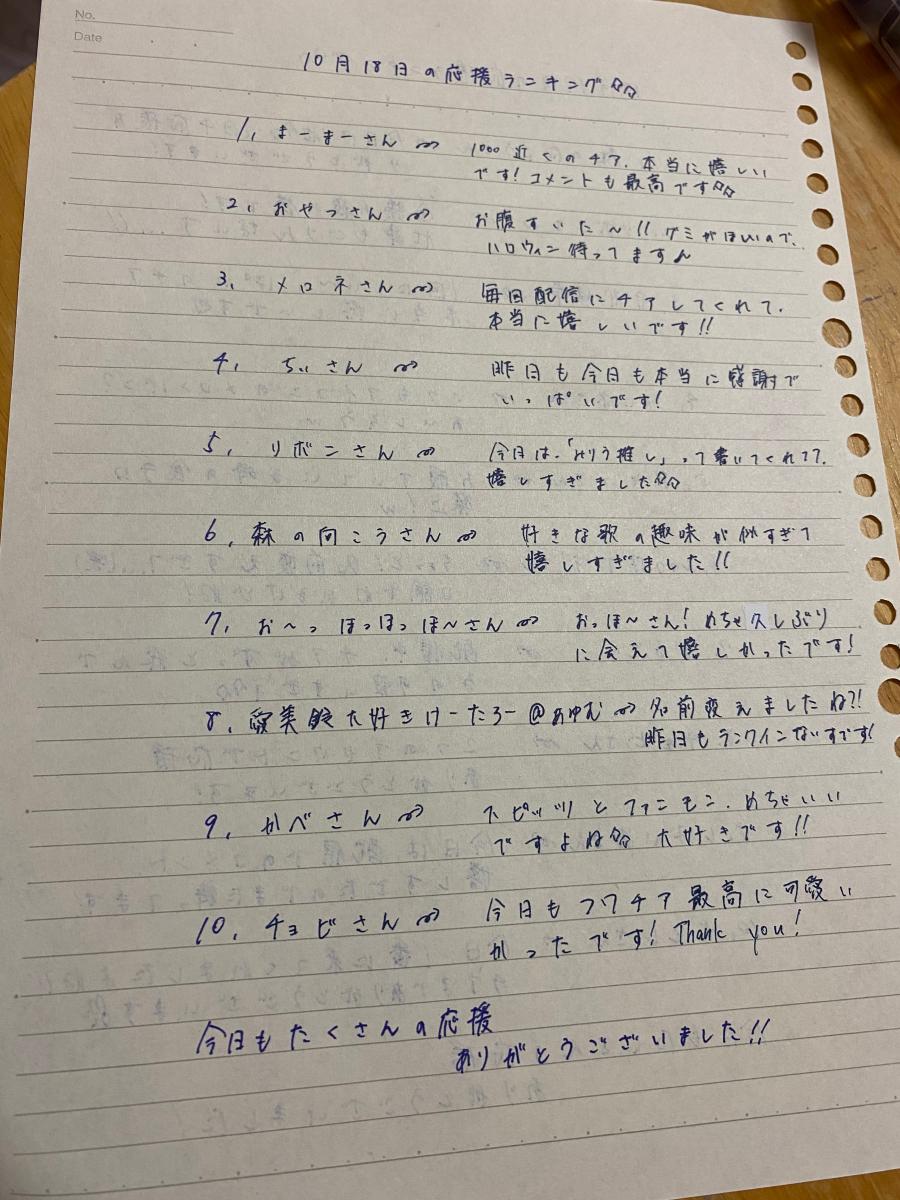 No.
Date
10月18日の応援ランキング☆☆
1. まーまーさん 1000近くのチア、本当に嬉しい
です!コメントも最高です☆☆
2. おやつさん お腹すいた〜!!グミがほしいので、
ハロウィン待ってます♪
3. メロネさん 毎日配信にチアしてくれて、
本当に嬉しいです!!
4. ちぃさん 昨日も今日も本当に感謝で
いっぱいです!
5. リボンさん 今日は、「みりう推し」って書いてくれてて、
嬉しすぎました☆☆
6. 森の向こうさん 好きな歌の趣味が似すぎて
嬉しすぎました!!
7. お〜っほっほっほ〜さん おっほ〜さん!めちゃ久しぶり
に会えて嬉しかったです!
8. 愛美錠大好きけーたろー@あゆむ 名前変えましたね?!
昨日もランクインないすです!
9. かべさん スピッツとファンモン、めちゃいい
ですよね☆☆ 大好きです!!
10. チョビさん 今日もフワチア最高に可愛い
かったです!Thank you!
今日もたくさんの応援
ありがとうございました!!